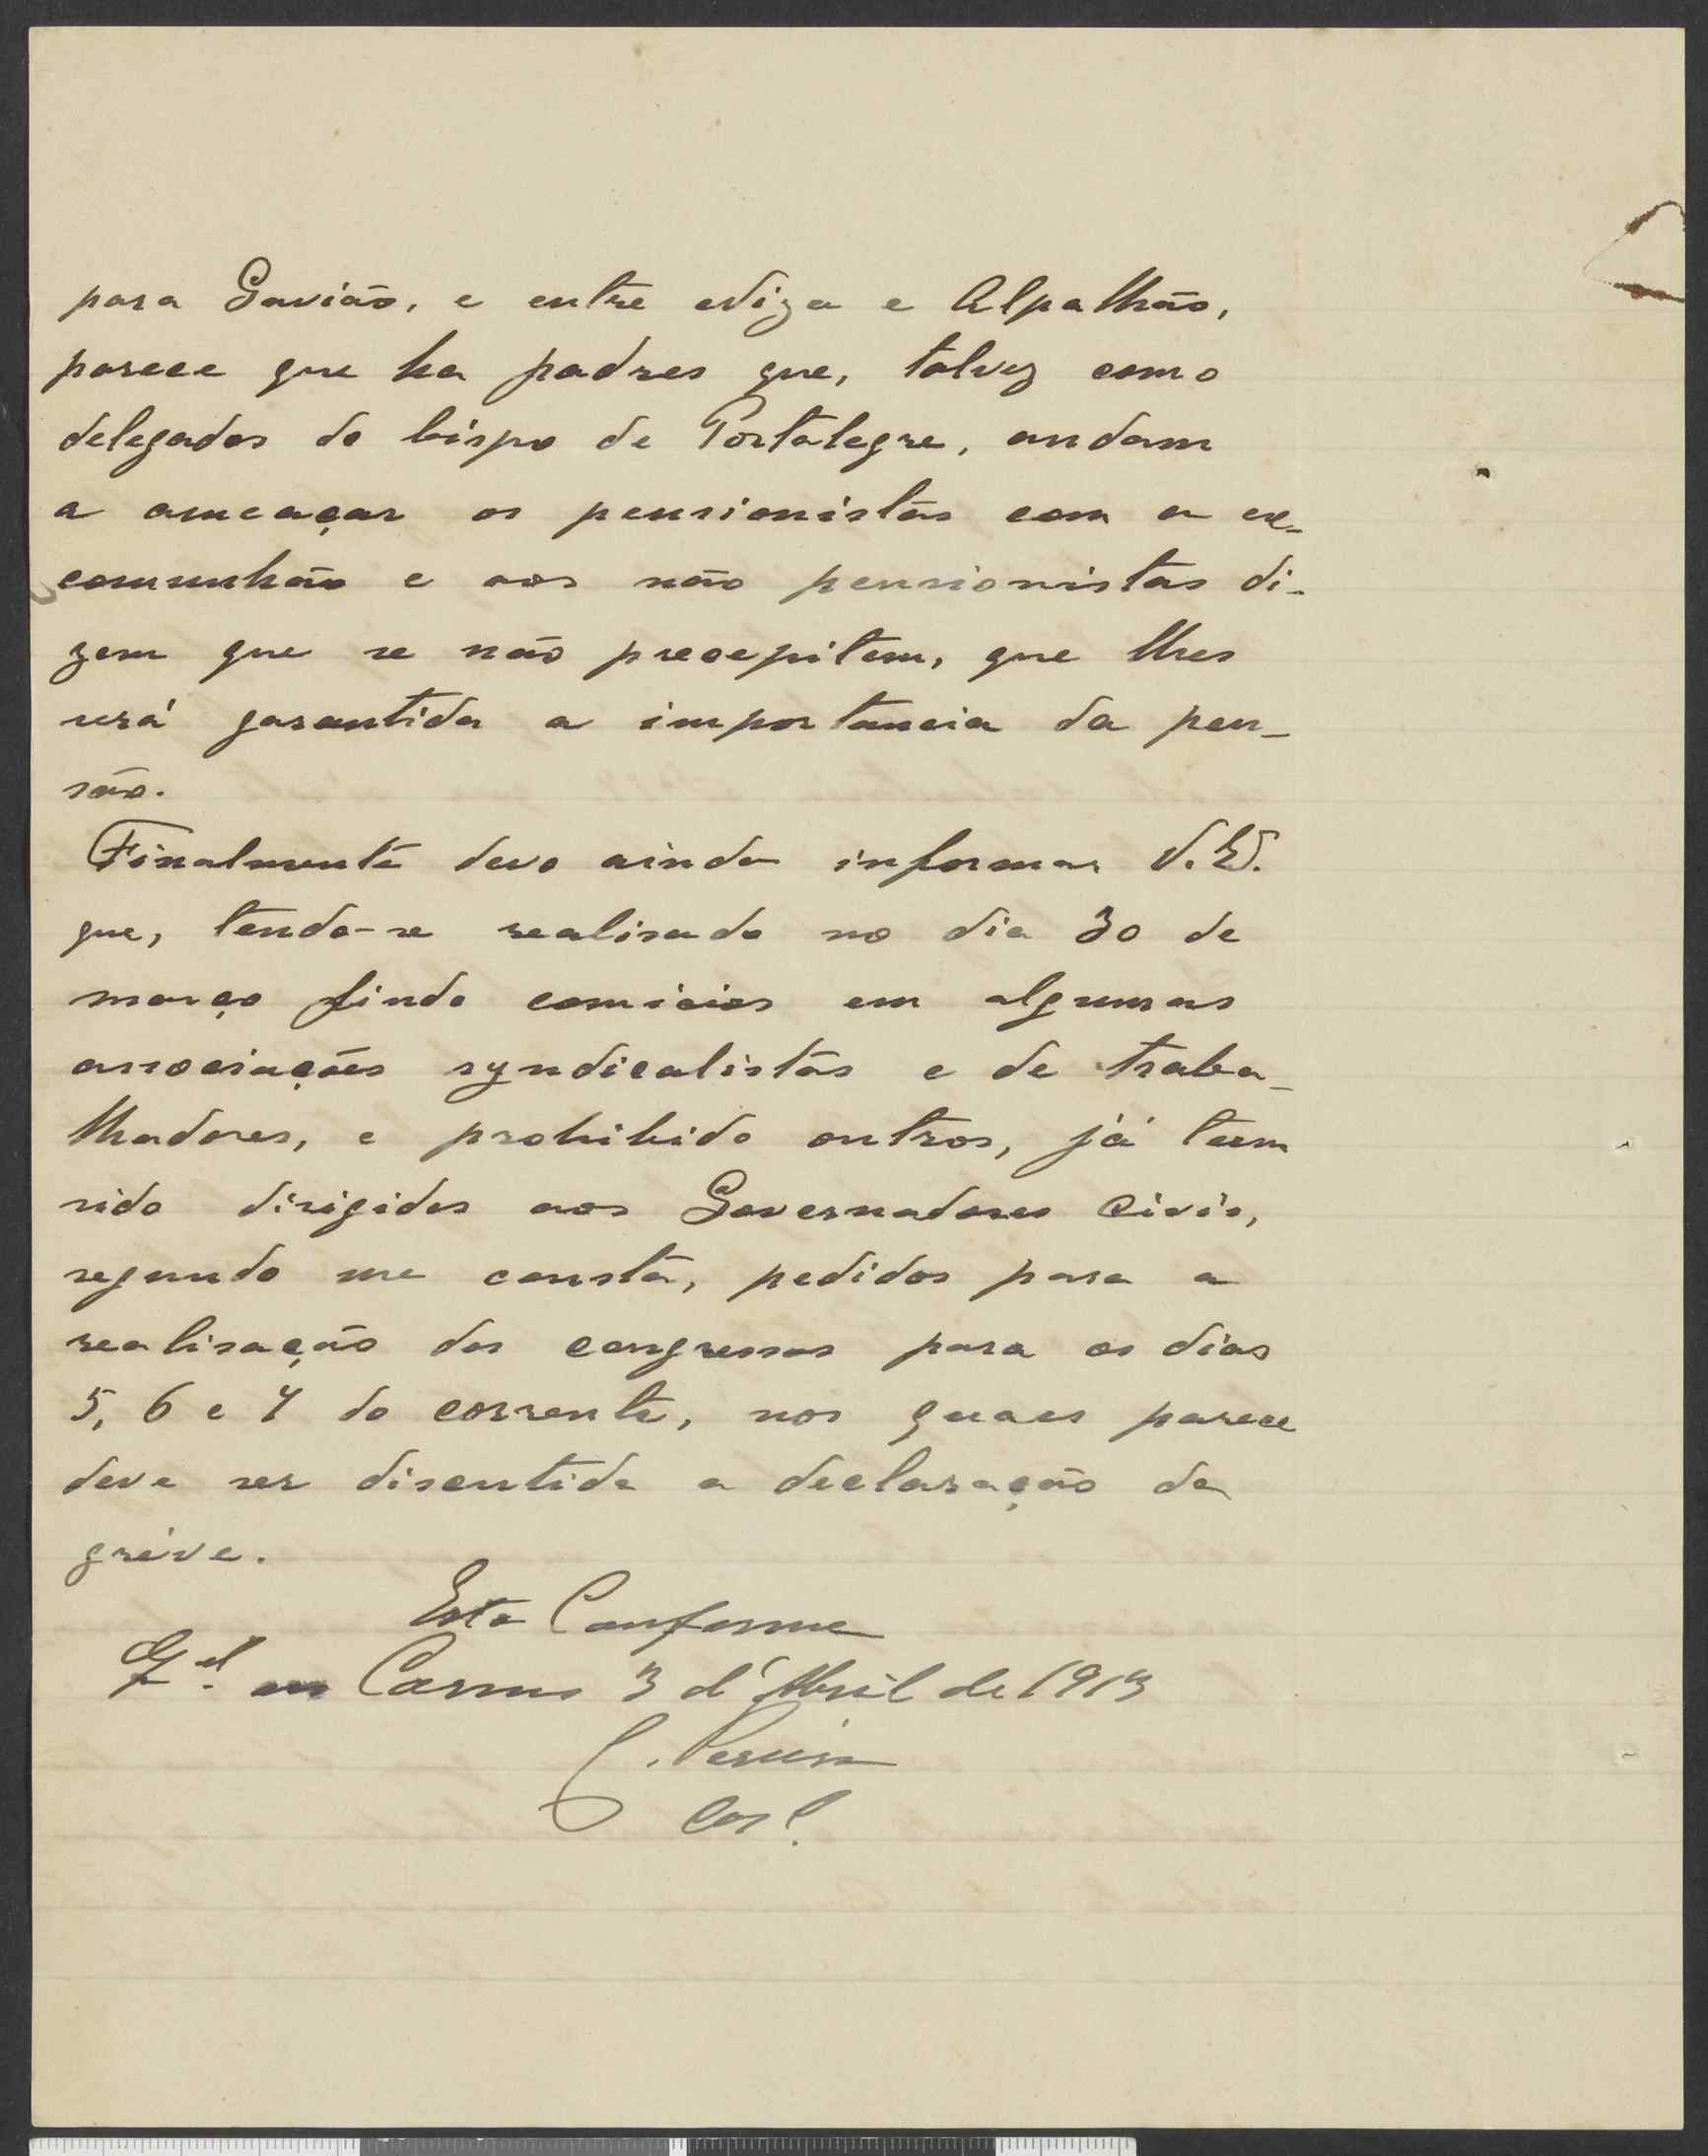 para Gavião, e entre Niza e Alpalhão,
parece que ha padres que, talvez como
delegados do bispo de Portalegre, andam
a ameaçar os pensionistas com a ex-
comunhão e aos não pensionistas di-
zem que se não precepitem, que lhes
será garantida a importancia da pen-
são.
Finalmente devo ainda informar V. Ex.
que, tendo-se realisado no dia 30 de
março findo comicios em algumas
associações syndicalistas e de traba-
lhadores, e prohibido outros, já teem
sido dirigidos aos Governadores Civis,
segundo me consta, pedidos para a
realisação dos congressos para os dias
5, 6 e 7 do corrente, nos quaes parece
deve ser discutida a declaração da
gréve.
Está Conforme
Q.el no Carmo 3 d'Abril de 1913
C. Pereira
Cor.l